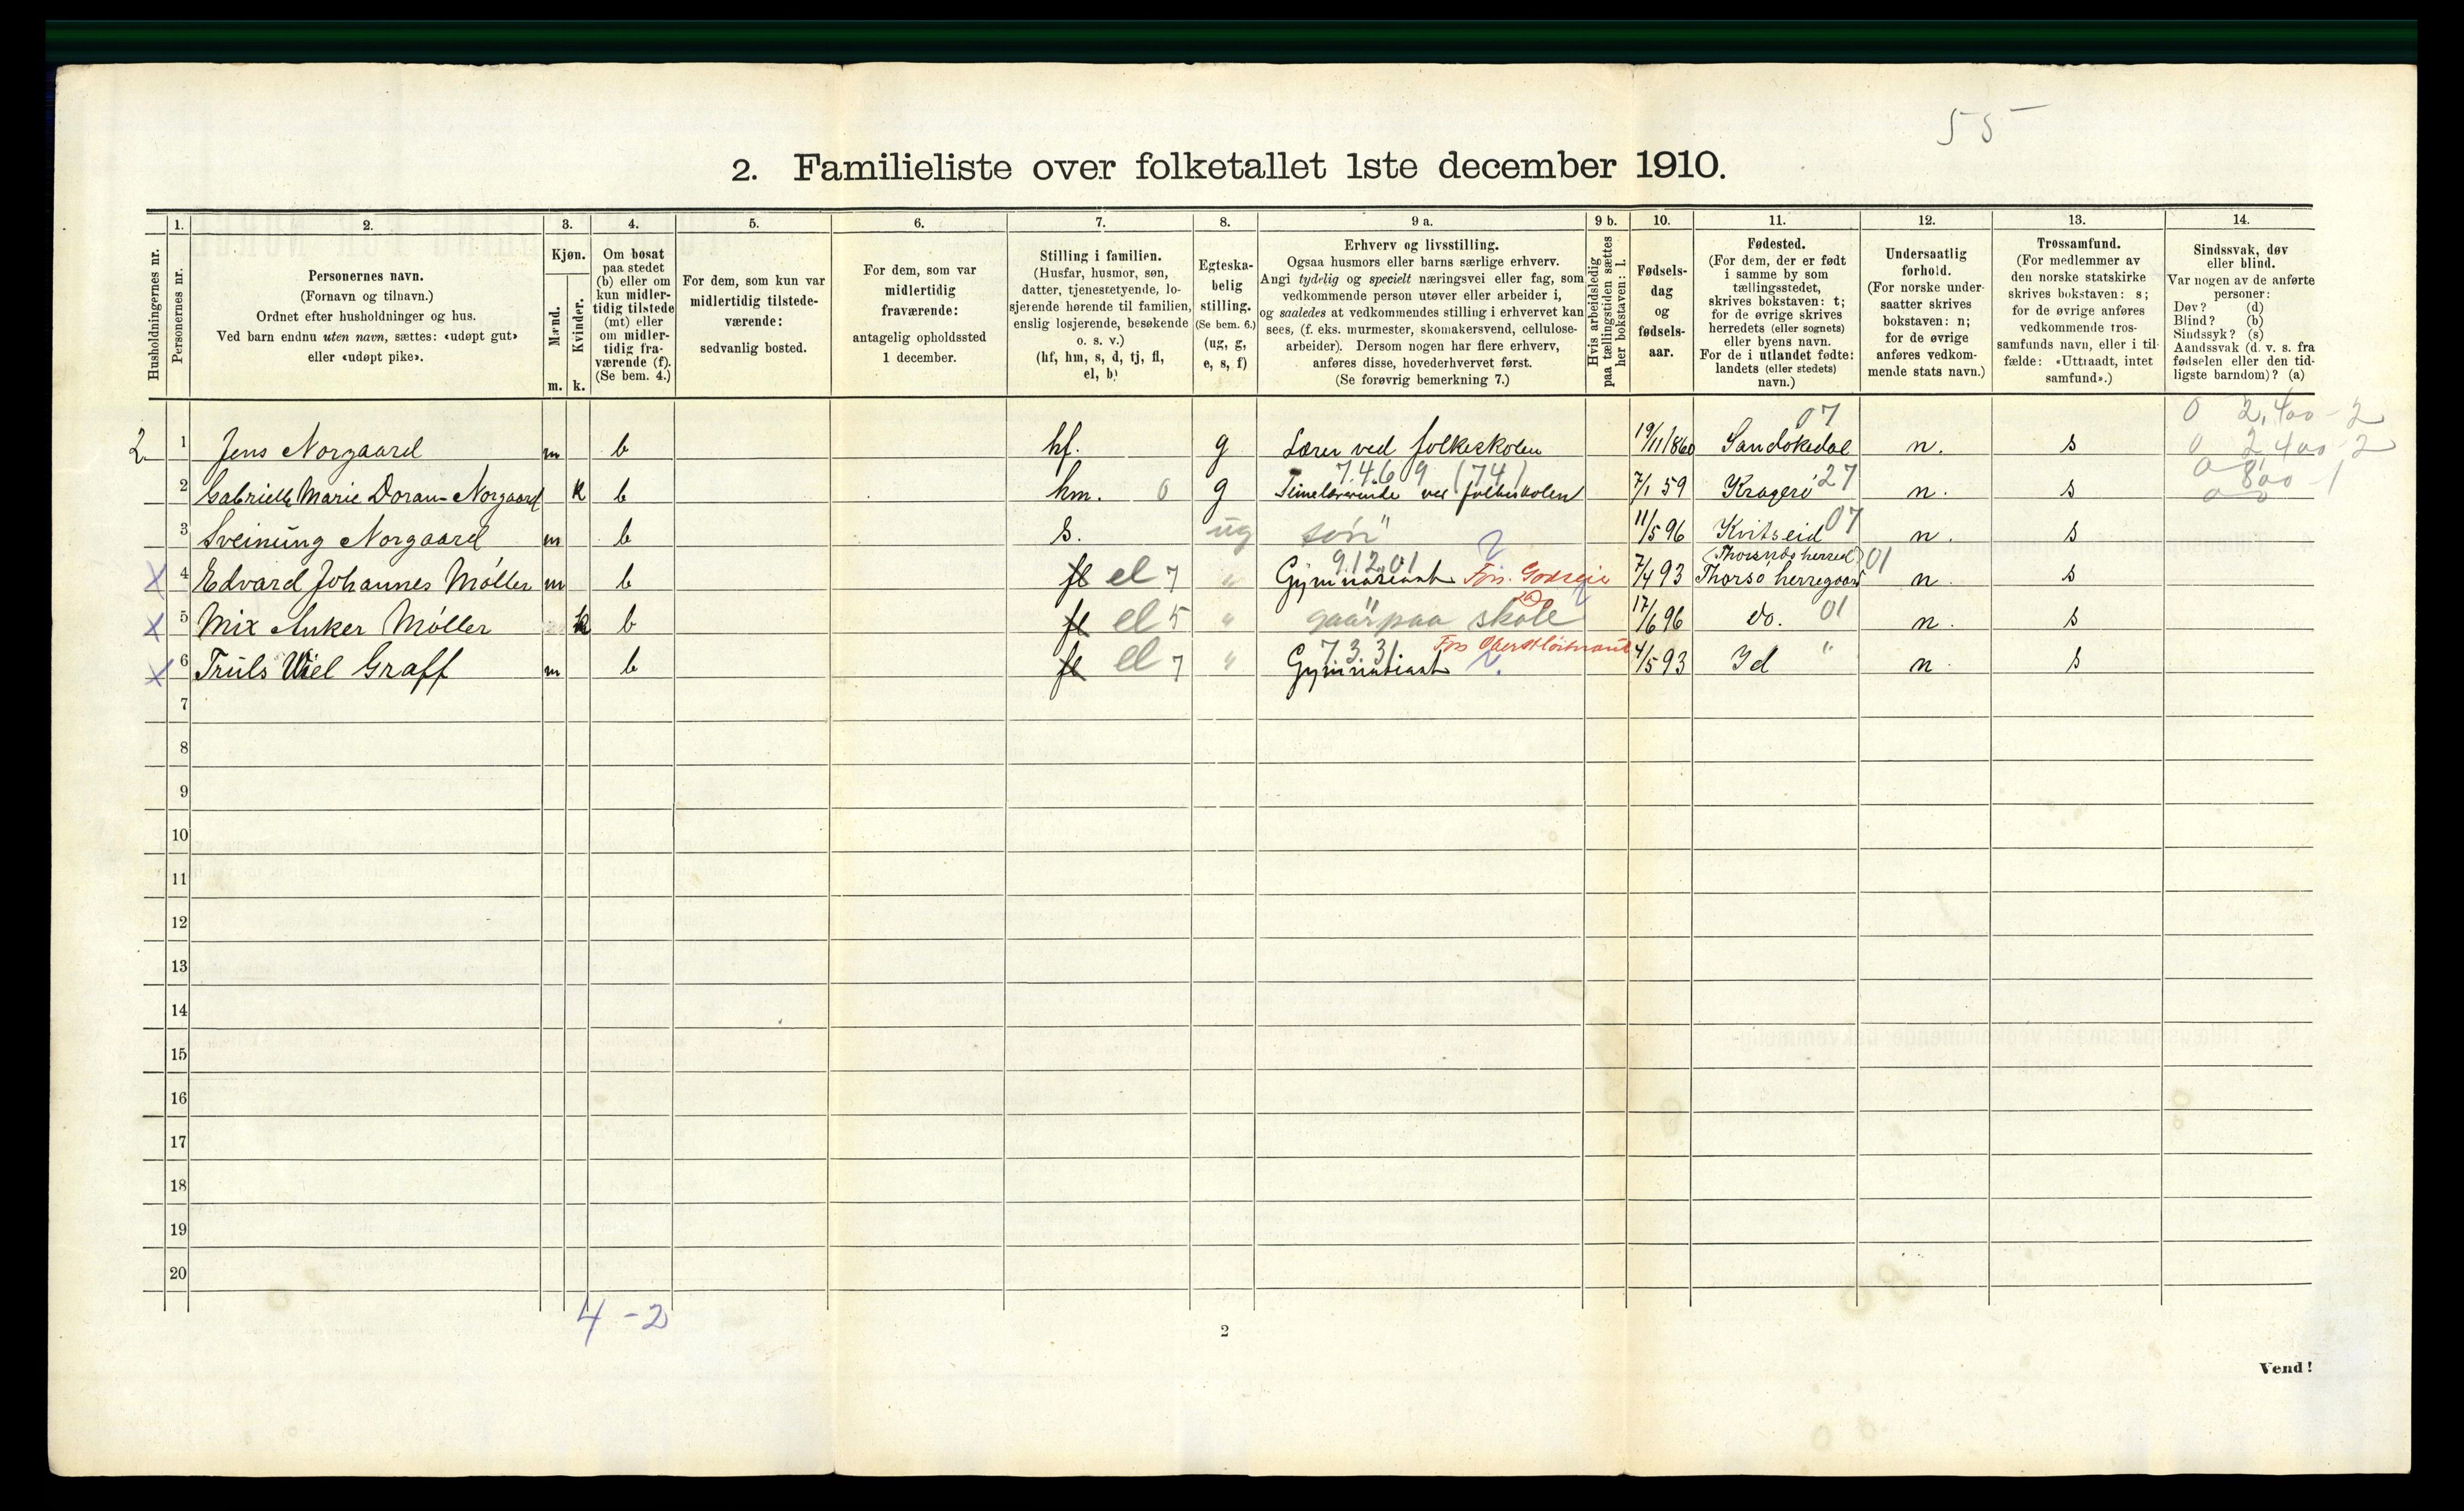 55
2. Familieliste over folketallet 1ste december 1910.
Husholdningernes nr.
1.
Personernes nr.
2.
Personernes navn.
(Fornavn og tilnavn.)
Ordnet efter husholdninger og hus.
Ved barn endnu uten navn, sættes: «udøpt gut»
eller «udøpt pike».
3.
Kjøn.
Mænd.
Kvinder.
m. k.
4.
Om bosat
paa stedet
(b) eller om
kun midler-
tidig tilstede
(mt) eller
om midler-
tidig fra-
værende (f).
(Se bem. 4.)
5.
For dem, som kun var
midlertidig tilstede-
værende:
sedvanlig bosted.
6.
For dem, som var
midlertidig
fraværende:
antagelig opholdssted
1 december.
7.
Stilling i familien.
(Husfar, husmor, søn,
datter, tjenestetyende, lo-
sjerende hørende til familien,
enslig losjerende, besøkende
o. s. v.)
(hf, hm, s, d, tj, fl,
el, b)
8.
Egteska-
belig
stilling.
(Se bem. 6.)
(ug, g,
e, s, f)
9 a.
Erhverv og livsstilling.
Ogsaa husmors eller barns særlige erhverv.
Angi tydelig og specielt næringsvei eller fag, som
vedkommende person utøver eller arbeider i,
og saaledes at vedkommendes stilling i erhvervet kan
sees, (f. eks. murmester, skomakersvend, cellulose-
arbeider). Dersom nogen har flere erhverv,
anføres disse, hovederhvervet først.
(Se forøvrig bemerkning 7.)
9 b.
Hvis arbeidsledig
paa tællingstiden sættes
her bokstaven: l.
10.
Fødsels-
dag
og
fødsels-
aar.
11.
Fødested.
(For dem, der er født
i samme by som
tællingsstedet,
skrives bokstaven: t;
for de øvrige skrives
herredets (eller sognets)
eller byens navn.
For de i utlandet fødte:
landets (eller stedets)
navn.)
12.
Undersaatlig
forhold.
(For norske under-
saatter skrives
bokstaven: n;
for de øvrige
anføres vedkom-
mende stats navn.)
13.
Trossamfund.
(For medlemmer av
den norske statskirke
skrives bokstaven: s;
for de øvrige anføres
vedkommende tros-
samfunds navn, eller i til-
fælde: «Uttraadt, intet
samfund».)
14.
Sindssvak, døv
eller blind.
Var nogen av de anførte
personer:
Døv? (d)
Blind? (b)
Sindssyk? (s)
Aandssvak (d. v. s. fra
fødselen eller den tid-
ligste barndom)? (a)
07 0 2,400-2
2. 1 Jens Norgaard m b hf. g Lærer ved folkeskolen 19/11 1860 Sandøkedal n. s 0 2,400-2
7.4.6 9 (74) 0 800-1
2 Gabrielle Marie Dorau-Norgaard k b hm. 0 g Timelærerinde ved folkeskolen 7/1 59 Kragerø 27 n. s
3 Sveinung Norgaard m b s. ug søn " 11/5 96 Kvitseid 07 n. s
9.12.01 (Thorsnes herred) 01
X 4 Edvard Johannes Møller m b fl el 7 " Gymnasiast Fors. Godseier 7/4 93 Thorsø herregaard n. s
X 5 Mix Anker Møller k b fl el 5 " gaar paa skole 17/6 96 do. 01 n. s
7.3.31 Fors Oberstløitnant
X 6 Truls Wiel Graff m b fl el 7 " Gymnasiast 4/5 93 Id " n. s
7
8
9
10
11
12
13
14
15
16
17
18
19
20
4-2
2
Vend!